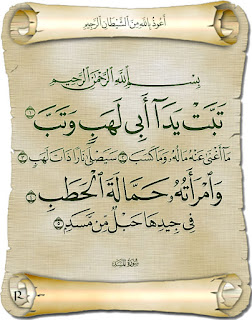 أَعُوذُ بِاللَّهِ مِنَ ٱلشَّيْطَانِ ٱلرَّجِيمِ
بِسْمِ ٱللَّهِ ٱلرَّحْمَٰنِ ٱلرَّحِيمِ
تَبَّتْ يَدَآ أَبِى لَهَبٍ وَتَبَّ ١
مَآ أَغْنَىٰ عَنْهُ مَالُهُۥ وَمَا كَسَبَ ٢ سَيَصْلَىٰ نَارًا ذَاتَ لَهَبٍ ٣
وَٱمْرَأَتُهُۥ حَمَّالَةَ ٱلْحَطَبِ ٤
فِى جِيدِهَا حَبْلٌ مِّن مَّسَدٍ ٥
سُورَةُ المَسَد